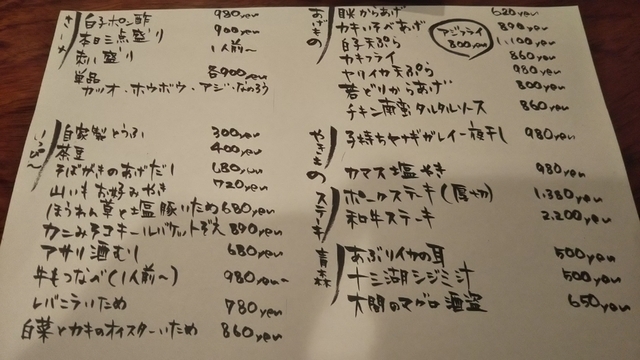 さしみ
白子ポン酢 980yen
本日三点盛り 900yen
刺し盛り 1人前〜
単品 各900yen
カツオ・ホウボウ・アジ・なめろう
いっぴん
自家製とうふ 300yen
茶豆 400yen
そばがきのあげだし 680yen
山いもお好みやき 720yen
ほうれん草と塩豚いため 680yen
カニみそコキールバケットぞえ 890yen
アサリ酒むし 680yen
牛もつなべ(1人前〜) 980yen〜
レバニラいため 780yen
白菜とカキのオイスターいため 860yen
あげもの
からあげ 620yen
カキいそべあげ 890yen
白子天ぷら 1,100yen
カキフライ 860yen
ヤリイカ天ぷら 980yen
若どりからあげ 800yen
チキン南蛮タルタルソース 860yen
アジフライ
800yen
やきもの
子持ちヤナギガレイ一夜干し 980yen
カマス塩やき 980yen
ステーキ
ポークステーキ(厚切) 1,380yen
和牛ステーキ 2,200yen
青森
あぶりイカの耳 500yen
十三湖シジミ汁 500yen
大間のマグロ酒盗 650yen